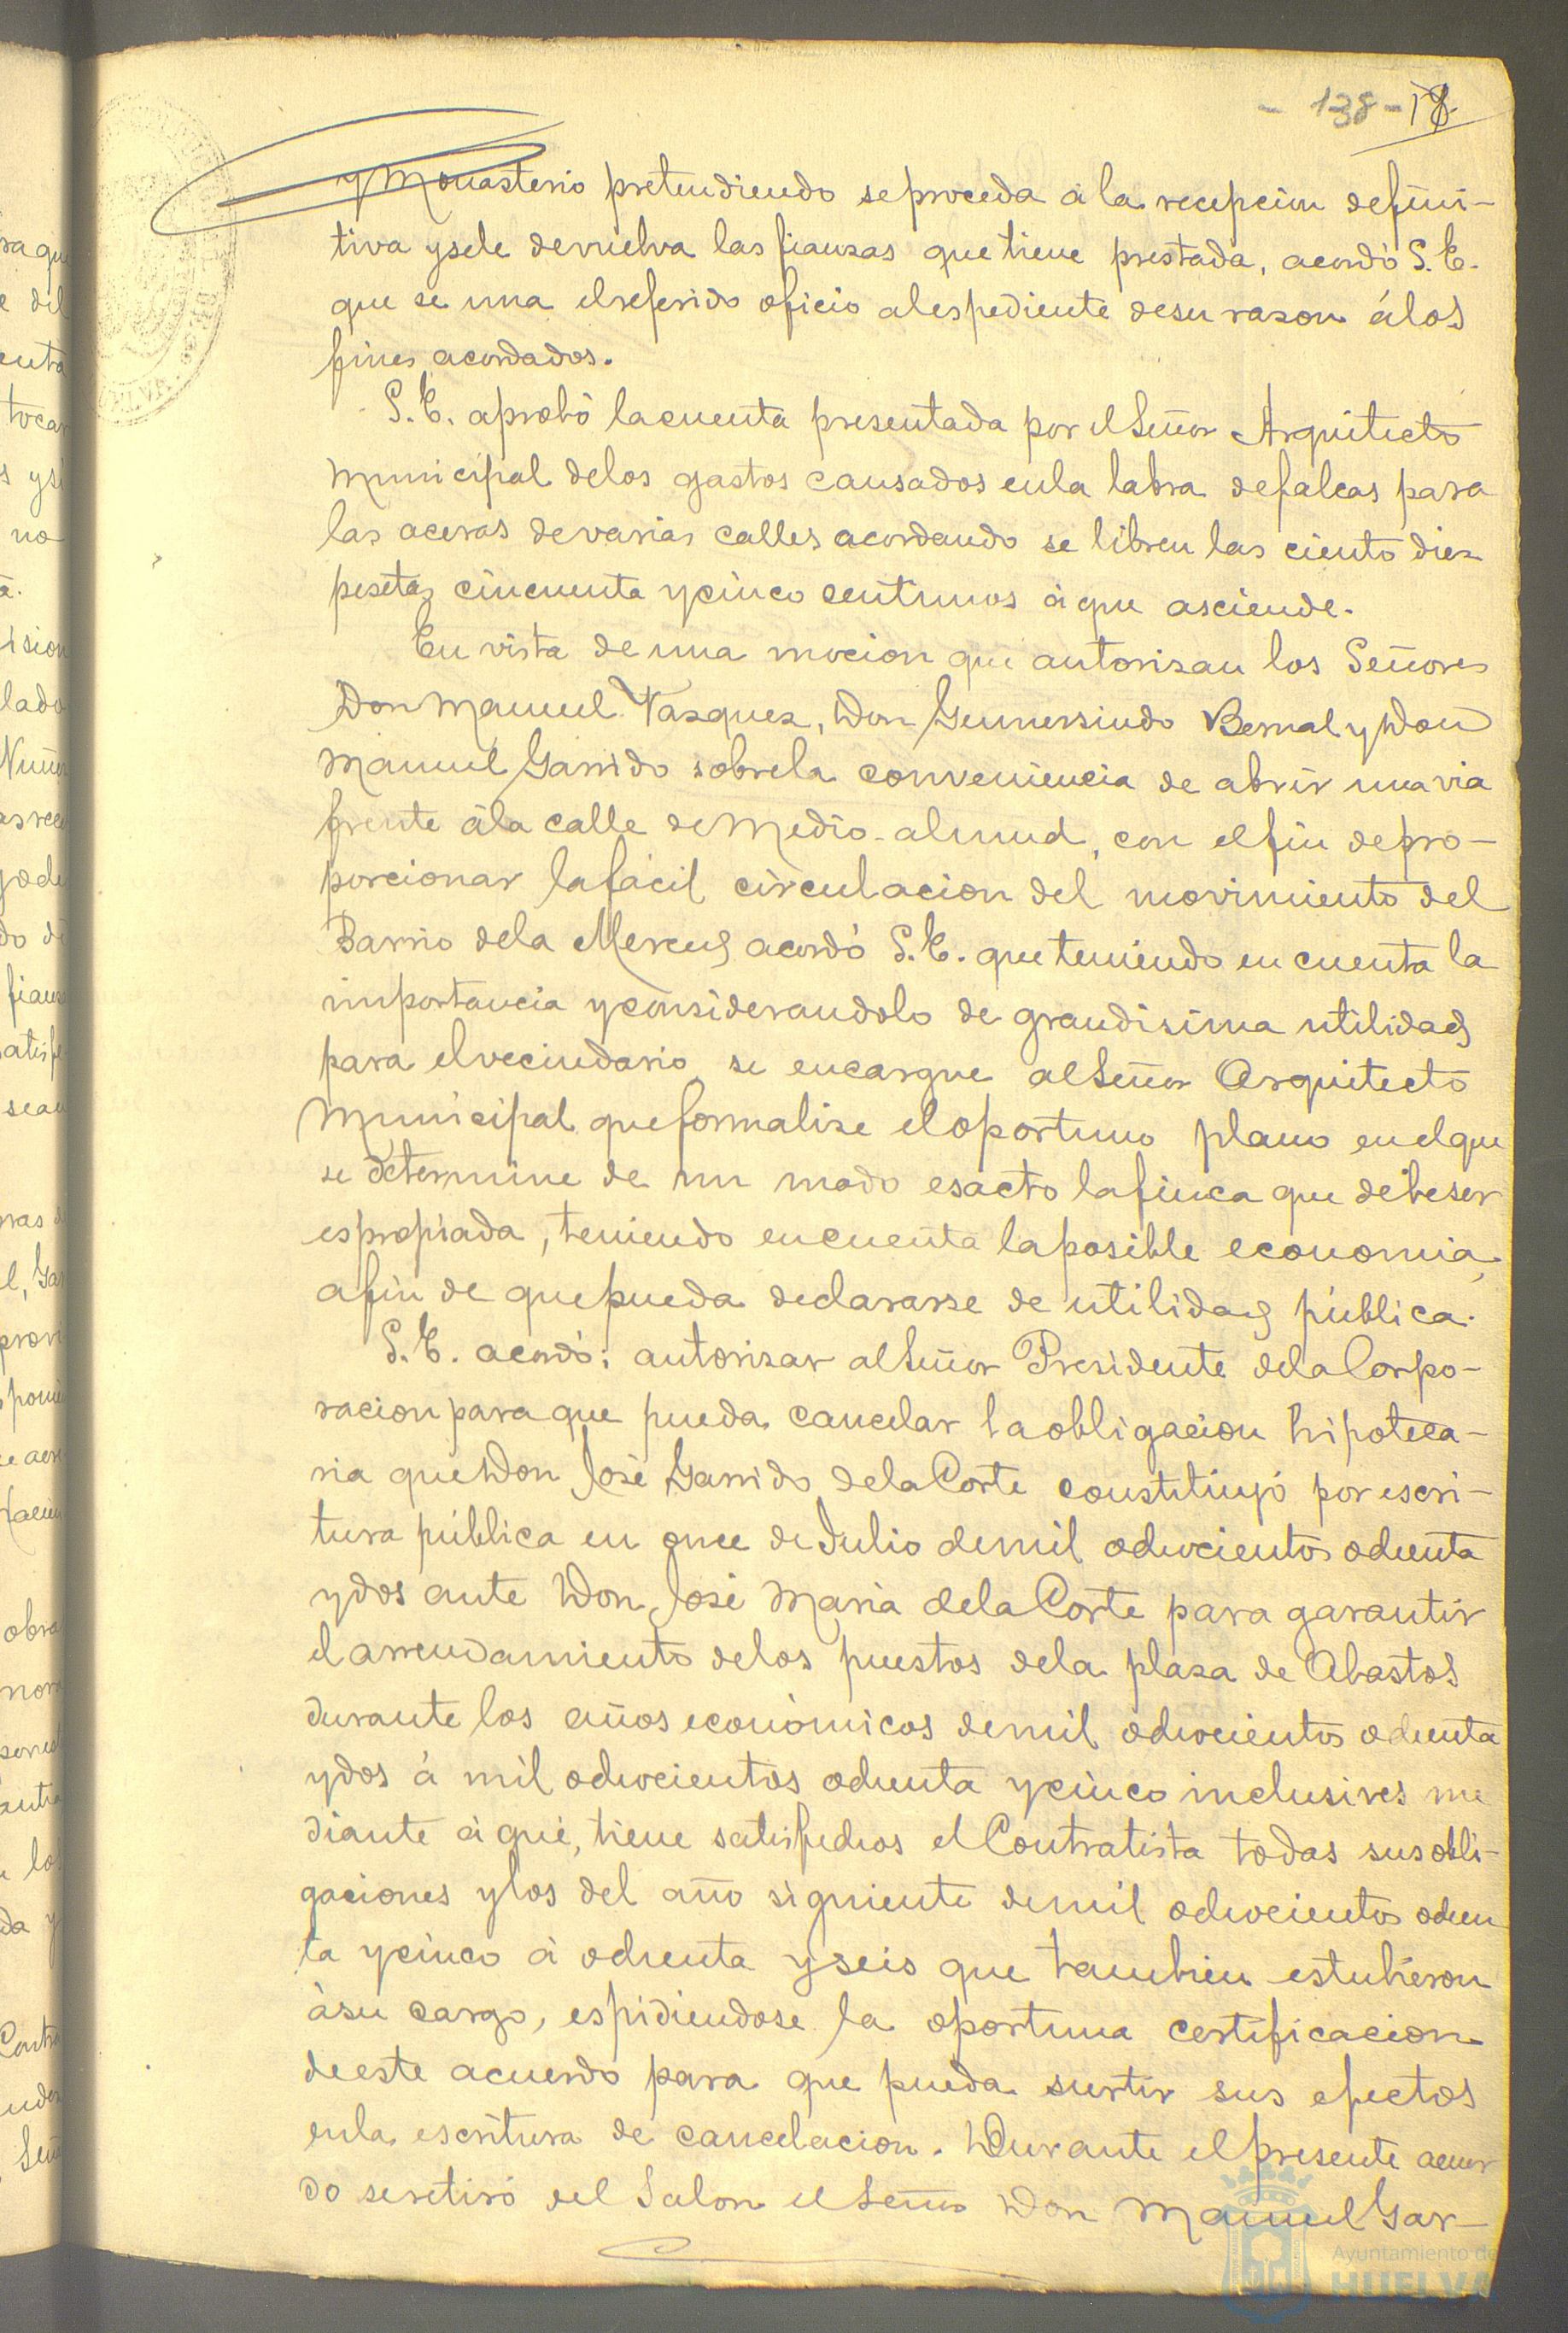 - 138 - 18
y Monasterio pretendiendo se proceda á la recepcion defini-
tiva y se le devuelva las fianzas que tiene prestada, acordó S. E.
que se una el referido oficio al espediente de su razon á los
fines acordados.
S. E. aprobó la cuenta presentada por el Señor Arquitecto
Municipal de los gastos causados en la labra de falcas para
las aceras de varias calles acordando se libren las ciento diez
pesetas cincuenta y cinco centimos á que asciende.
En vista de una mocion que autorizan los Señores
Don Manuel Vazquez, Don Gumersindo Bernal y Don
Manuel Garrido sobre la conveniencia de abrir una via
frente á la calle de Medio-almud, con el fin de pro-
porcionar la fácil circulacion del movimiento del
Barrio de la Merced acordó S. E. que teniendo en cuenta la
importancia y considerandolo de grandisima utilidad
para el vecindario se encargue al Señor Arquitecto
Municipal que formalise el oportuno plano en el que
se determine de un modo esacto la finca que debe ser
espropiada, teniendo en cuenta la posible economia,
a fin de que pueda declararse de utilidad pública.
S. E. acordó: autorizar al Señor Presidente de la Corpo-
racion para que pueda cancelar la obligacion hipoteca-
ria que Don José Garrido de la Corte constituyó por escri-
tura pública en once de Julio de mil ochocientos ochenta
y dos ante Don José Maria de la Corte para garantir
el arrendamiento de los puestos de la plaza de Abastos
durante los años económicos de mil ochocientos ochenta
y dos á mil ochocientos ochenta y cinco inclusives me
diante á que, tiene satisfechos el Contratista todas sus obli-
gaciones y los del año siguiente de mil ochocientos ochen
ta y cinco á ochenta y seis que tambien estubieron
á su cargo, espidiendose la oportuna certificacion
de este acuerdo para que pueda surtir sus efectos
en la escritura de cancelacion. Durante el presente acuer
do se retiró del Salon el Señor Don Manuel Gar-
Ayuntamiento de
HUELVA